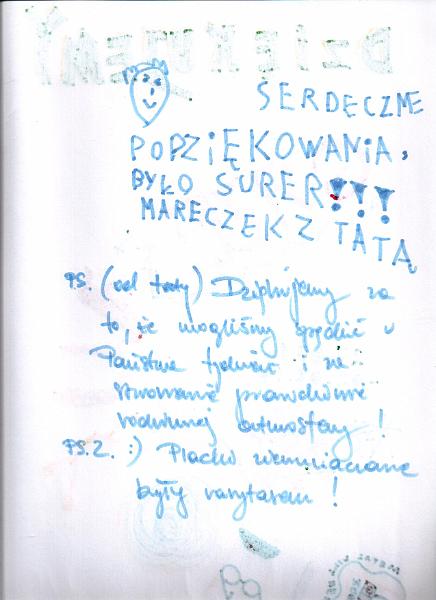 SERDĘCZNE
PODZiĘKOWANiA,
BYŁO SURER!!!
MARECZEK Z TATĄ
PS. (od taty) Dziękujemy za
to, że mogliśmy spędzić u
Państwa tydzień i za
stworzenie prawdziwie
rodzinnej atmosfery!
PS.2. :) Placki ziemniaczane
były rarytasem!